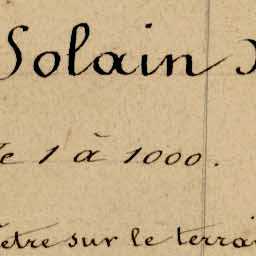 Solain
e 1 à 1000.
être sur le terrai